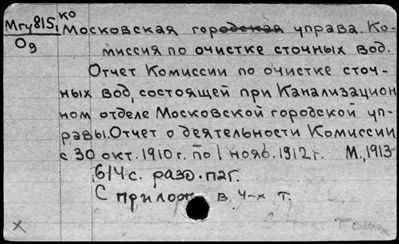 ко
Мгу815, Московская городская управа. Ко-
Од миссия по очистке сточных вод.
Отчет Комиссии по очистке сточ-
ных вод, состоящей при Канализацион
ном отделе Московской городской уп-
равы. Отчет о деятельности Комиссии
с 30 окт. 1910 г. по 1 нояб. 1912 г. М., 1913
614 с. разд. паг.
С прилож. в 4-х т.